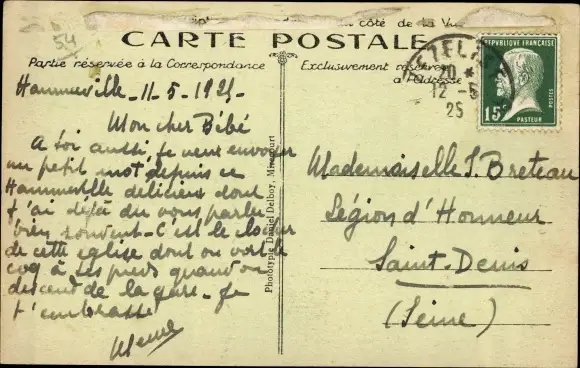 côté de la Vue
54
CARTE POSTALE
Partie réservée à la Correspondance
Exclusivement réservée
à l'Adresse
RÉPUBLIQUE FRANÇAISE
POSTES
15c
PASTEUR
20
12 - 5
25
Hammeville - 11-5-1925-
Mon cher Bébé
A toi aussi, je veux envoyer
un petit mot, depuis ce
Hammeville délicieux dont
j'ai déjà du vous parler
bien souvent - C'est le clocher
de cette église dont on voit le
coq à ses pieds quand on
descend de la gare - Je
t'embrasse
Phototypie Daniel Delboy, Mirecourt
Mademoiselle S. Breteau
Légion d'Honneur
Saint-Denis
(Seine)